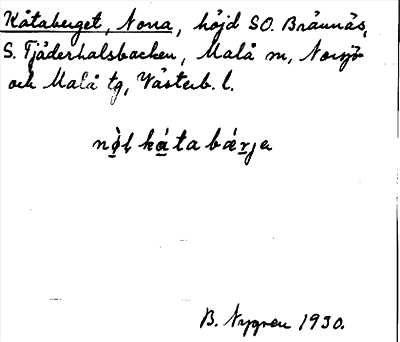 Kåtaberget, Norra, höjd SO. Brännäs,
S. Tjäderhalsbacken, Malå sn, Norsjö
och Malå tg, Västerb. l.
nọ̀ḷ kátabǽrja
B. Nygren 1930.